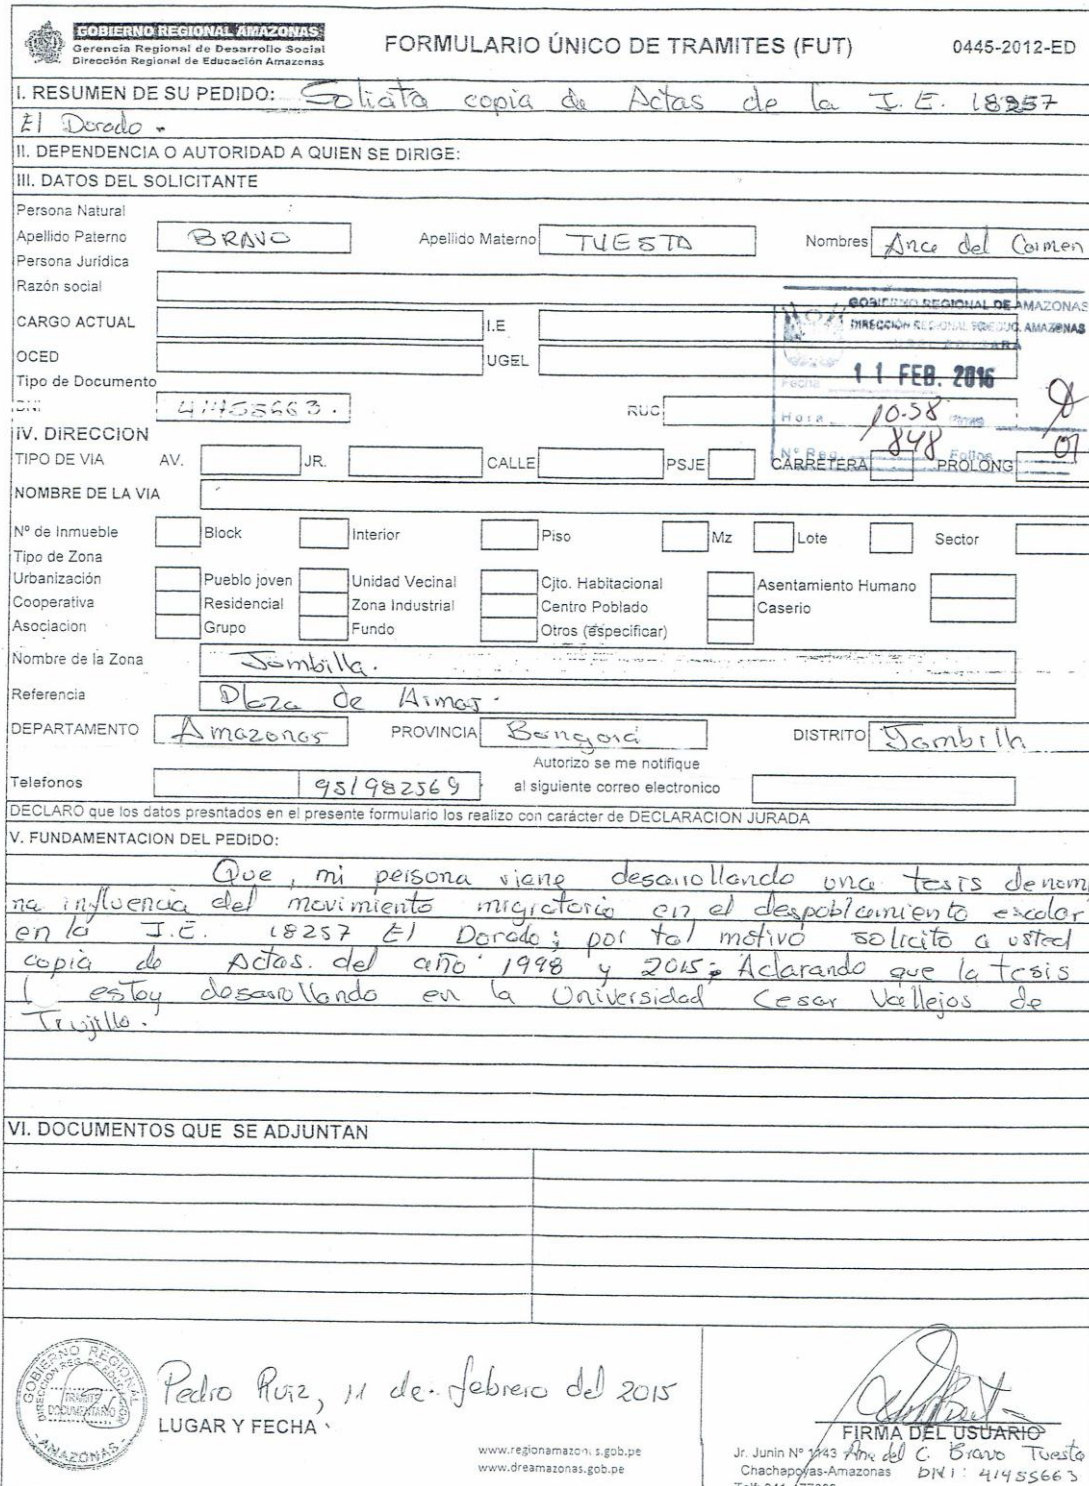 GOBIERNO REGIONAL AMAZONAS
Gerencia Regional de Desarrollo Social
Dirección Regional de Educación Amazonas
FORMULARIO ÚNICO DE TRAMITES (FUT)
0445-2012-ED
I. RESUMEN DE SU PEDIDO: Solicita copia de Actas de la I.E. 18257
El Dorado.
II. DEPENDENCIA O AUTORIDAD A QUIEN SE DIRIGE:
III. DATOS DEL SOLICITANTE
Persona Natural
Apellido Paterno BRAVO Apellido Materno TUESTA Nombres Ana del Carmen
Persona Jurídica
Razón social
GOBIERNO REGIONAL DE AMAZONAS
CARGO ACTUAL I.E
DIRECCIÓN REGIONAL DE EDUC. AMAZONAS
OCED UGEL
Fecha 11 FEB. 2016
Tipo de Documento
DNI 41455663. RUC
Hora 10.58
IV. DIRECCION
Nº Reg. 848 Folios 01
TIPO DE VIA AV. JR. CALLE PSJE CARRETERA PROLONG
NOMBRE DE LA VIA
Nº de Inmueble Block Interior Piso Mz Lote Sector
Tipo de Zona
Urbanización Pueblo joven Unidad Vecinal Cjto. Habitacional Asentamiento Humano
Cooperativa Residencial Zona Industrial Centro Poblado Caserio
Asociacion Grupo Fundo Otros (especificar)
Nombre de la Zona Jambilla.
Referencia Plaza de Armas.
DEPARTAMENTO Amazonas PROVINCIA Bongará DISTRITO Jambilla
Autorizo se me notifique
Telefonos 951982569 al siguiente correo electronico
DECLARO que los datos presntados en el presente formulario los realizo con carácter de DECLARACION JURADA
V. FUNDAMENTACION DEL PEDIDO:
Que, mi persona viene desarrollando una tesis denomi
na influencia del movimiento migratorio en el despoblamiento escolar
en la I.E. 18257 El Dorado; por tal motivo solicito a usted
copia de Actas. del año 1998 y 2015; Aclarando que la tesis
estoy desarrollando en la Universidad Cesar Vallejos de
Trujillo.
VI. DOCUMENTOS QUE SE ADJUNTAN
GOBIERNO REGIONAL
DIRECCIÓN REG. DE EDUCACIÓN
TRAMITE
DOCUMENTARIO
AMAZONAS
Pedro Ruiz, 11 de febrero del 2015
LUGAR Y FECHA
FIRMA DEL USUARIO
Ana del C. Bravo Tuesta
DNI: 41455663
www.regionamazonas.gob.pe
www.dreamazonas.gob.pe
Jr. Junin Nº 1143
Chachapoyas-Amazonas